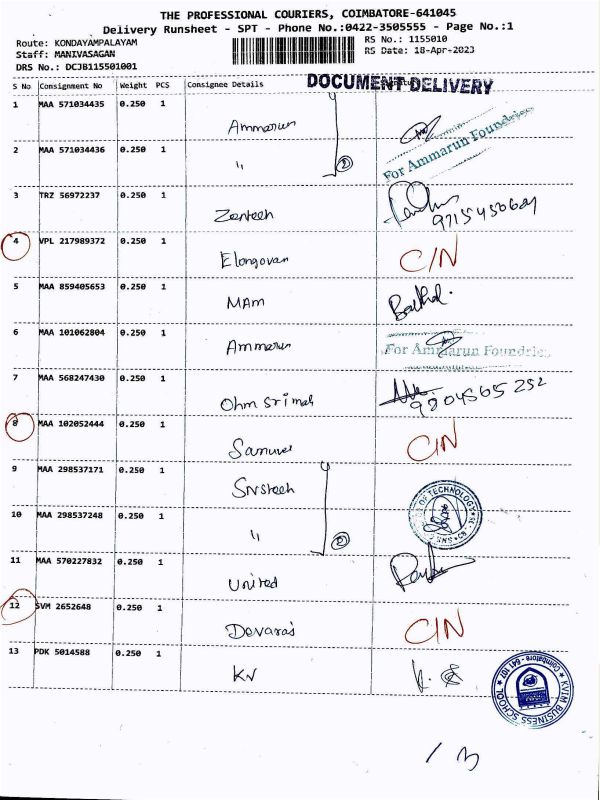 THE PROFESSIONAL COURIERS, COIMBATORE-641045
Delivery Runsheet - SPT - Phone No.:0422-3505555 - Page No.:1
Route: KONDAYAMPALAYAM RS No.: 1155010
Staff: MANIVASAGAN RS Date: 18-Apr-2023
DRS No.: DCJB115501001
DOCUMENT DELIVERY
S No Consignment No Weight PCS Consignee Details
1 MAA 571034435 0.250 1 Ammarun
For Ammarun Foundries
2 MAA 571034436 0.250 1 " 2
3 TRZ 56972237 0.250 1 Zentech
4 VPL 217989372 0.250 1 Elangovan C/N
5 MAA 859405653 0.250 1 MAM
6 MAA 101062804 0.250 1 Ammarun For Ammarun Foundries
7 MAA 568247430 0.250 1 Ohm Sri mah 9804565252
8 MAA 102052444 0.250 1 Samuvel C/N
9 MAA 298537171 0.250 1 Snstech
OF TECHNOLOGY
10 MAA 298537248 0.250 1 " 2
11 MAA 570227832 0.250 1 United
12 SVM 2652648 0.250 1 Devaraj C/N
13 PDK 5014588 0.250 1 KV
KVIM BUSINESS SCHOOL Coimbatore - 641 107
13